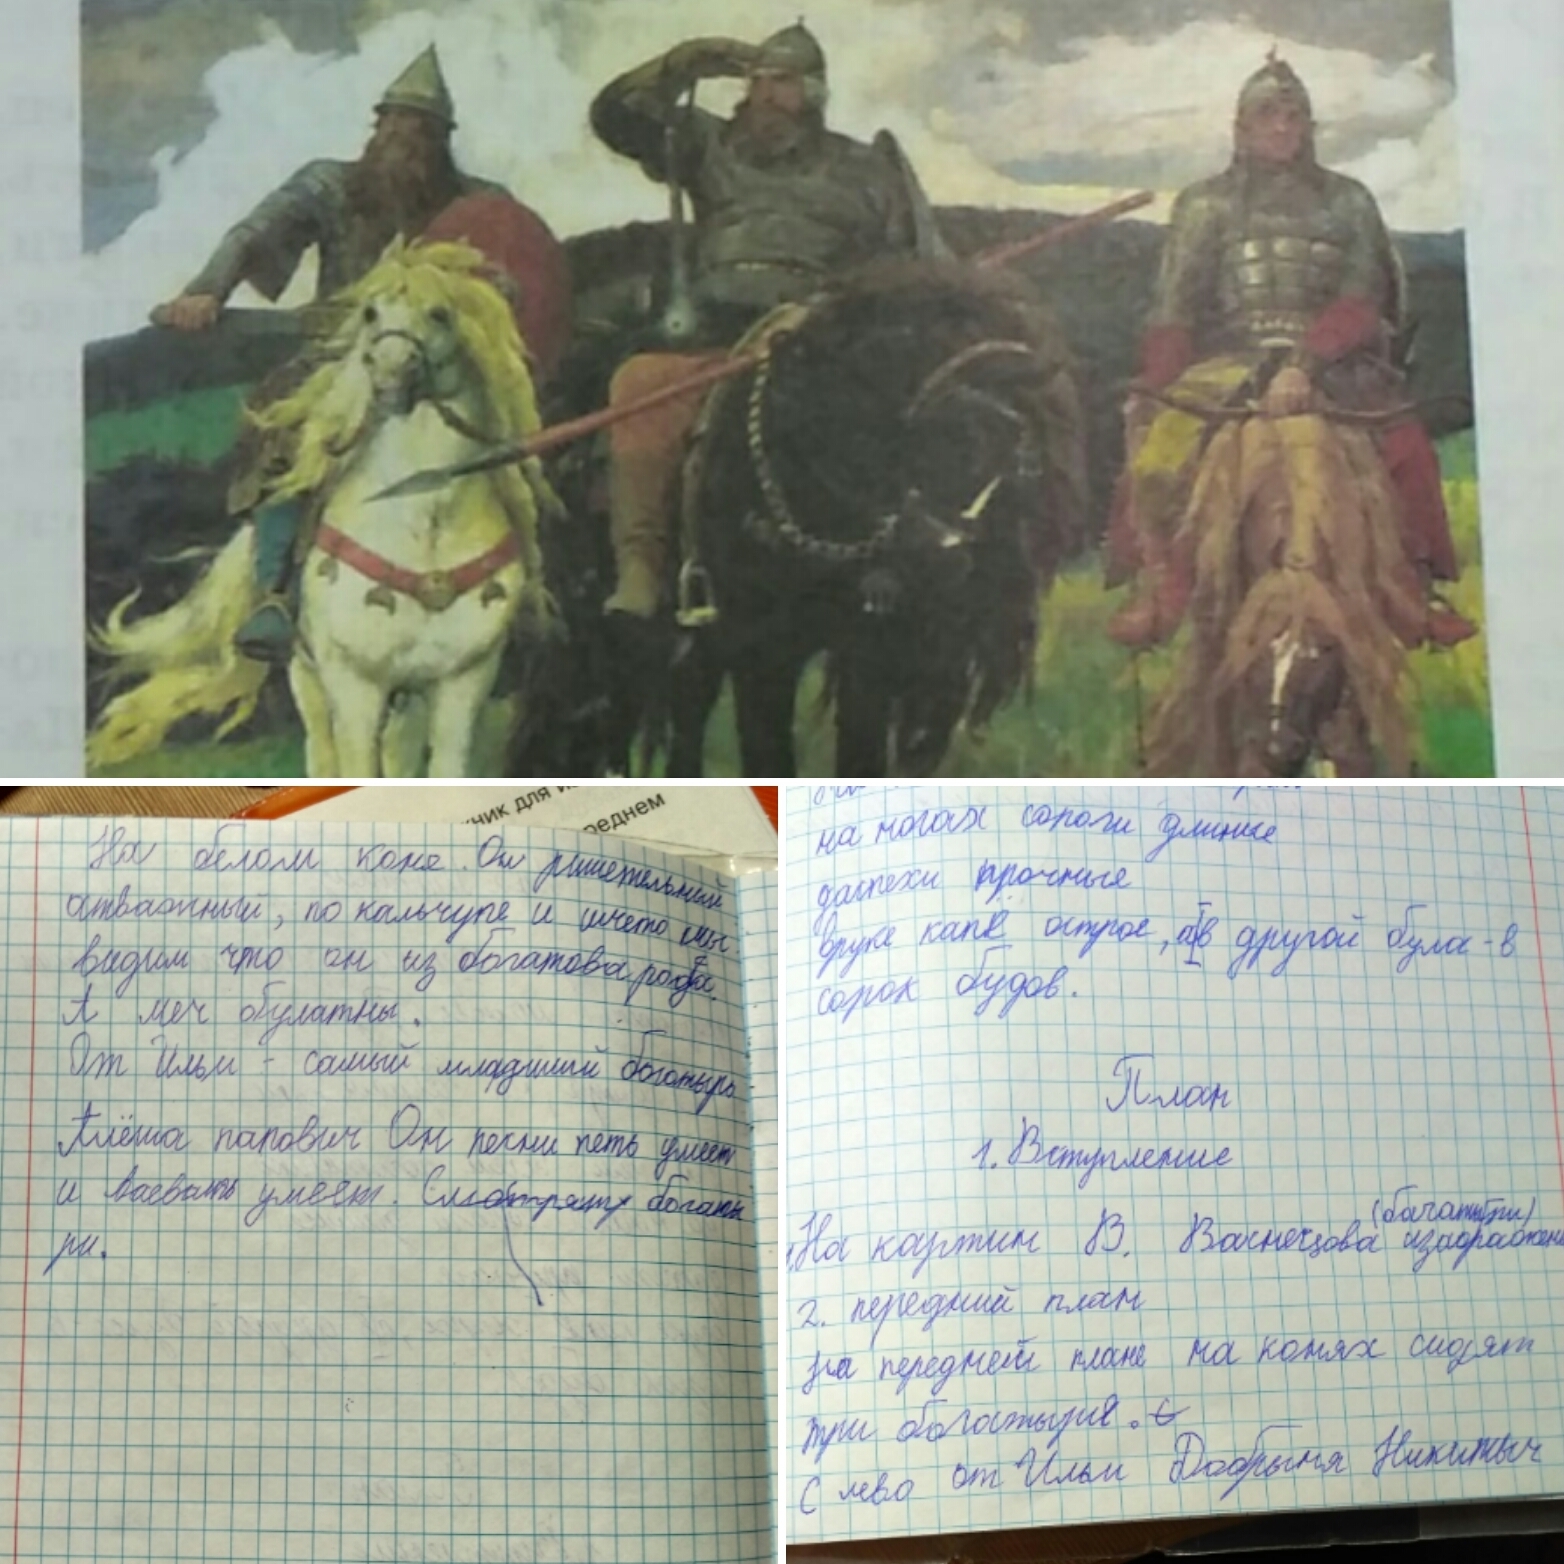 чник для и
реднем
На белом коне. Он решетельний
атважный, по кальчуге и
видим что он из богатова рода.
А меч обулатны.
От Ильи - самый младший богатырь
Алёша папович Он песни петь умеет
и ваевать умеет. богаты
ри.
на ногах сопоги длиные
даспехи прочные
вруке капё острое, а в другой була-в
сорок будов.
План
1. Вступление
(богатыри)
На картин В. Васнецова
2. передний план
На передней плане на конях сидят
три богатыря. С
С лево от Ильи Добрыня Никитыч